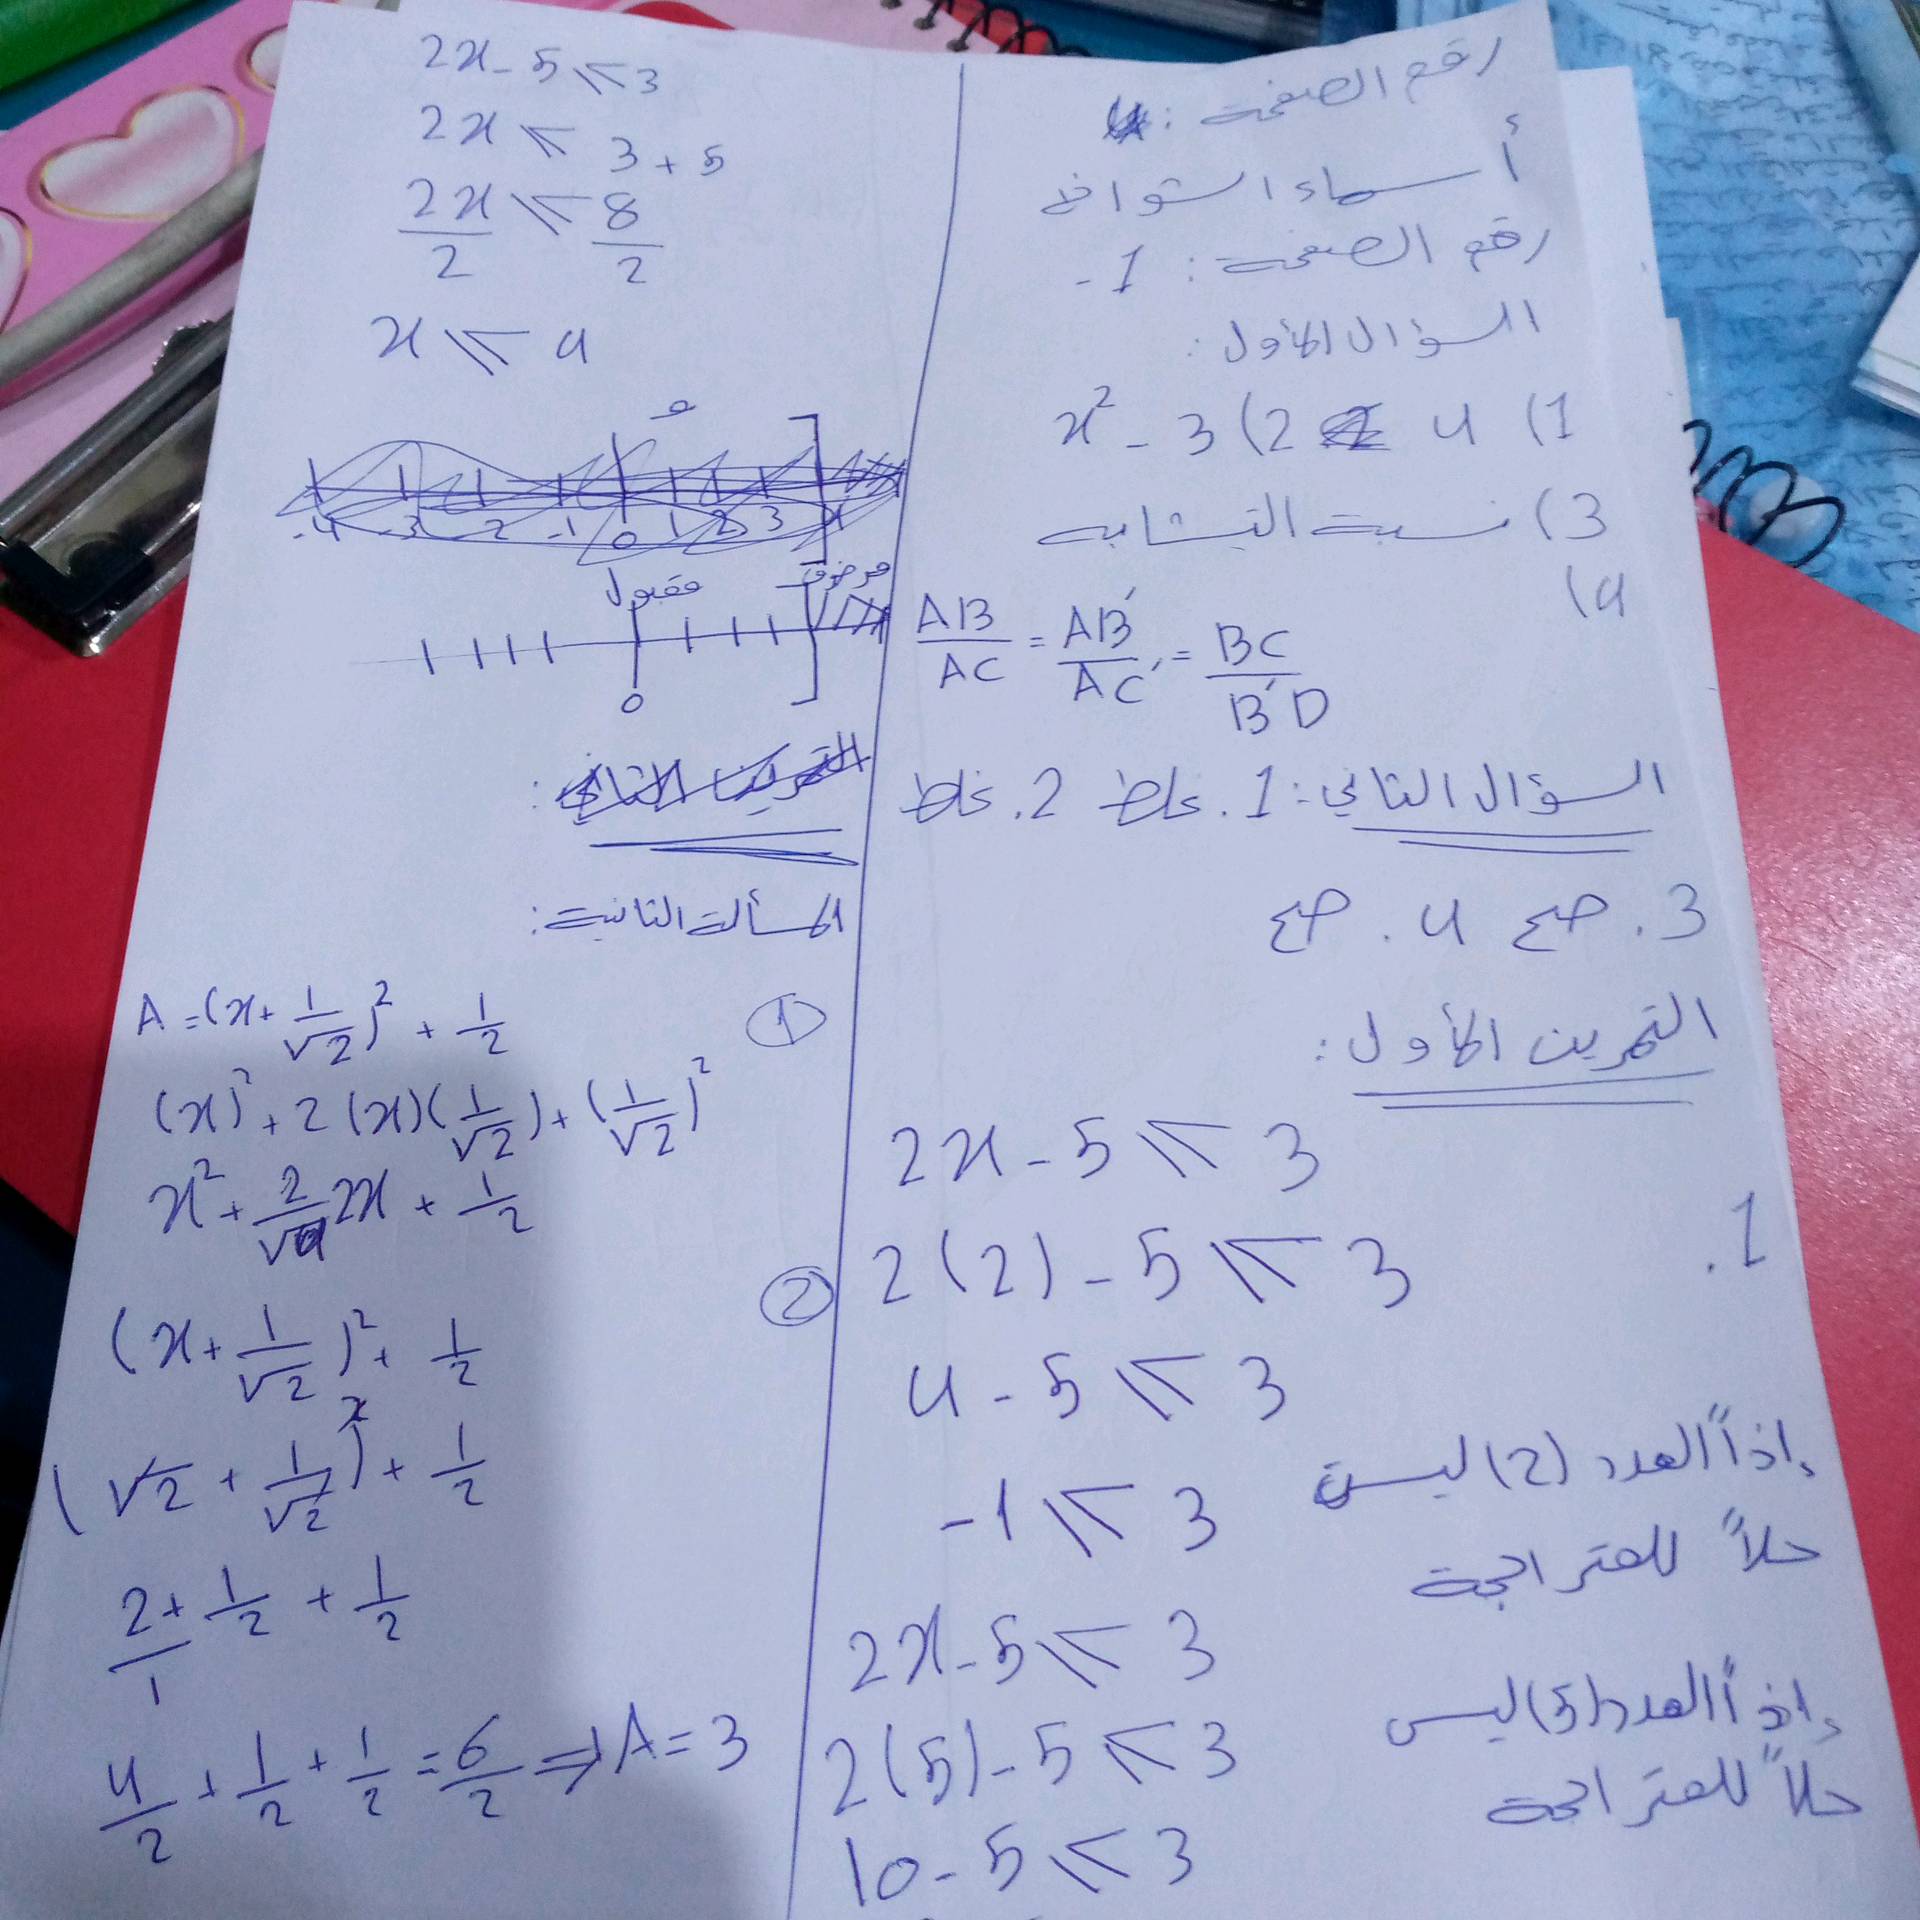 رقم الصفحة:
أسماء الشواخ
رقم الصفحة: 1-
السؤال الأول:
1) 4 2) x² - 3
3) نسبة التشابه
4)
AB/AC = AB'/AC' = BC/B'D
السؤال الثاني: 1. غلط 2. غلط
3. صح 4. صح
التمرين الأول:
2x - 5 ⩽ 3
1. 2(2) - 5 ⩽ 3
4 - 5 ⩽ 3
-1 ⩽ 3 إذاً العدد (2) ليس
حلاً للمتراجحة
2x - 5 ⩽ 3
2(5) - 5 ⩽ 3 إذاً العدد (5) ليس
حلاً للمتراجحة
10 - 5 ⩽ 3
2x - 5 ⩽ 3
2x ⩽ 3 + 5
2x/2 ⩽ 8/2
x ⩽ 4
-4 -3 -2 -1 0 1 2 3 4
مقبول مرفوض
0
التمرين الثاني:
المسألة الثانية:
① A = (x + 1/√2)² + 1/2
(x)² + 2(x)(1/√2) + (1/√2)²
x² + 2/√ 2x + 1/2
② (x + 1/√2)² + 1/2
(√2 + 1/√2)² + 1/2
2/1 + 1/2 + 1/2
4/2 + 1/2 + 1/2 = 6/2 ⇒ A = 3